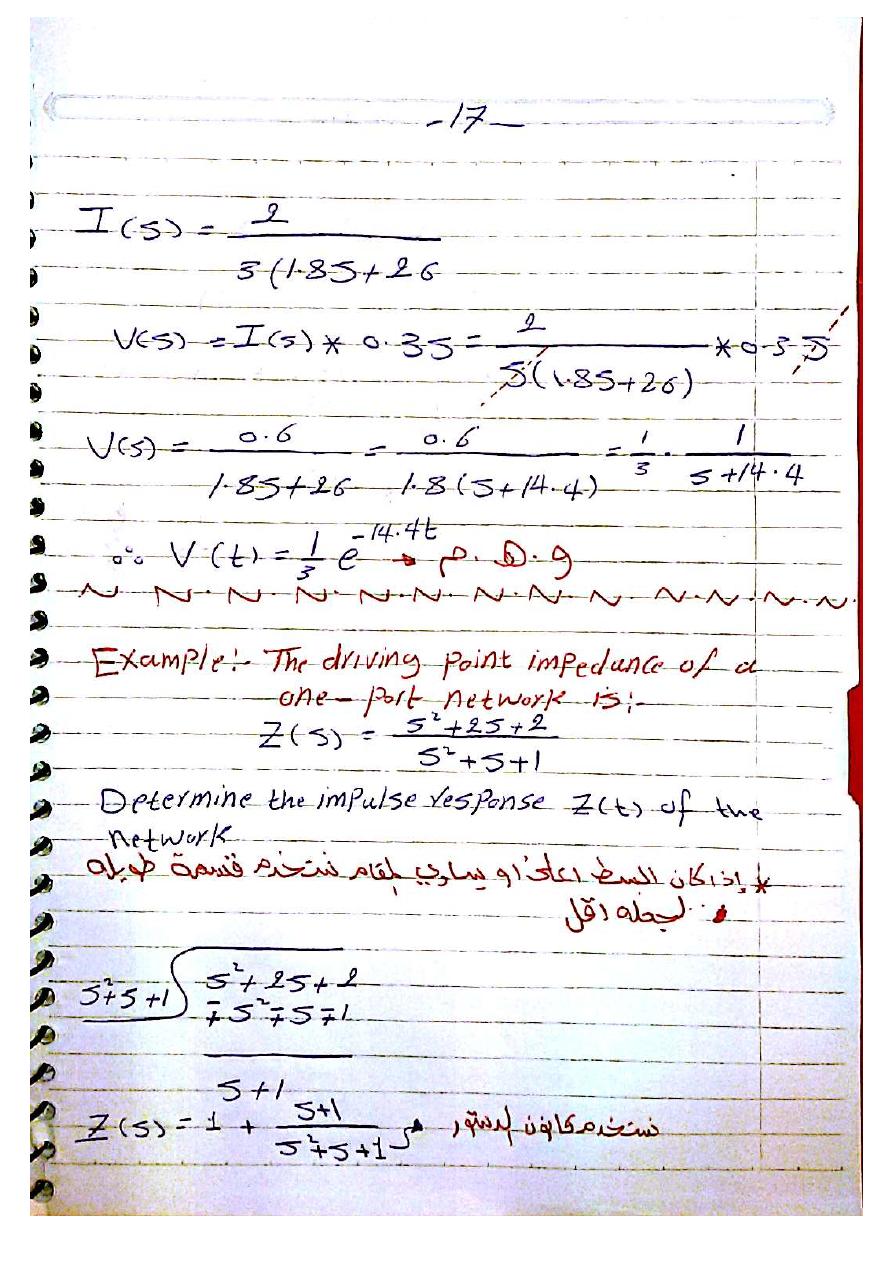 -17-
I(s) = 2 / 3(1.8s+26
V(s) = I(s) * 0.3s = 2 / s(1.8s+26) * 0.3 s
V(s) = 0.6 / 1.8s+26 = 0.6 / 1.8(s+14.4) = 1/3 . 1 / s+14.4
∴ V(t) = 1/3 e^-14.4t → و.هـ.م
Example:- The driving point impedance of a
one-port network is:-
Z(s) = s²+2s+2 / s²+s+1
Determine the impulse response Z(t) of the
network
* إذا كان البسط اعلى او يساوي المقام نستخدم قسمة طويله
لجعله اقل
s²+s+1 s²+2s+2
∓s²∓s∓1
s+1
Z(s) = 1 + s+1 / s²+s+1 نستخدم قانون الدستور